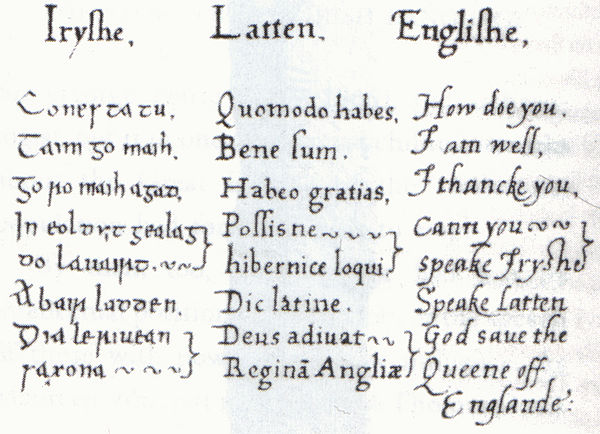 Iryſhe, Latten. Engliſhe,
Coneſ ta tu. Quomodo habes, How doe you
Taim go maih. Bene ſum. I am well,
Go ro maih agad. Habeo gratias, I thancke you,
In eol duẏt gealag Poſſis ne Cann you
do lauairt. hibernice loqui. ſpeake Iryſhe
Abair ladden. Dic latine. Speake Latten
Dia le riuean Deus adiuat God saue the
ſaxona Reginā Angliæ Queene off
Englande: